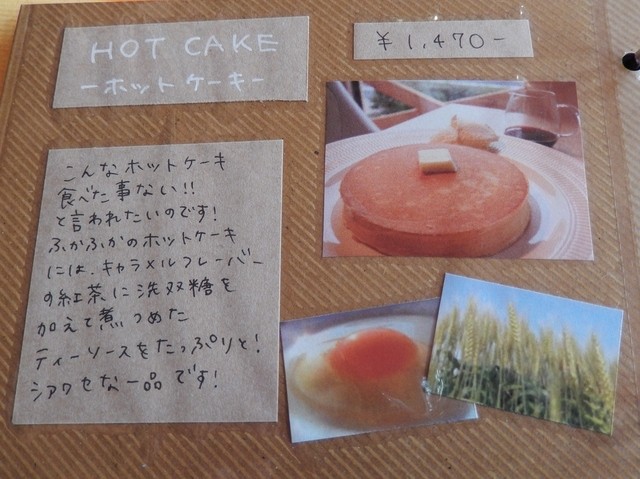 HOT CAKE
-ホットケーキ-
¥1,470-
こんなホットケーキ
食べた事ない!!
と言われたいのです!
ふかふかのホットケーキ
には、キャラメルフレーバー
の紅茶に洗双糖を
加えて煮つめた
ティーソースをたっぷりと!
シアワセな一品です!